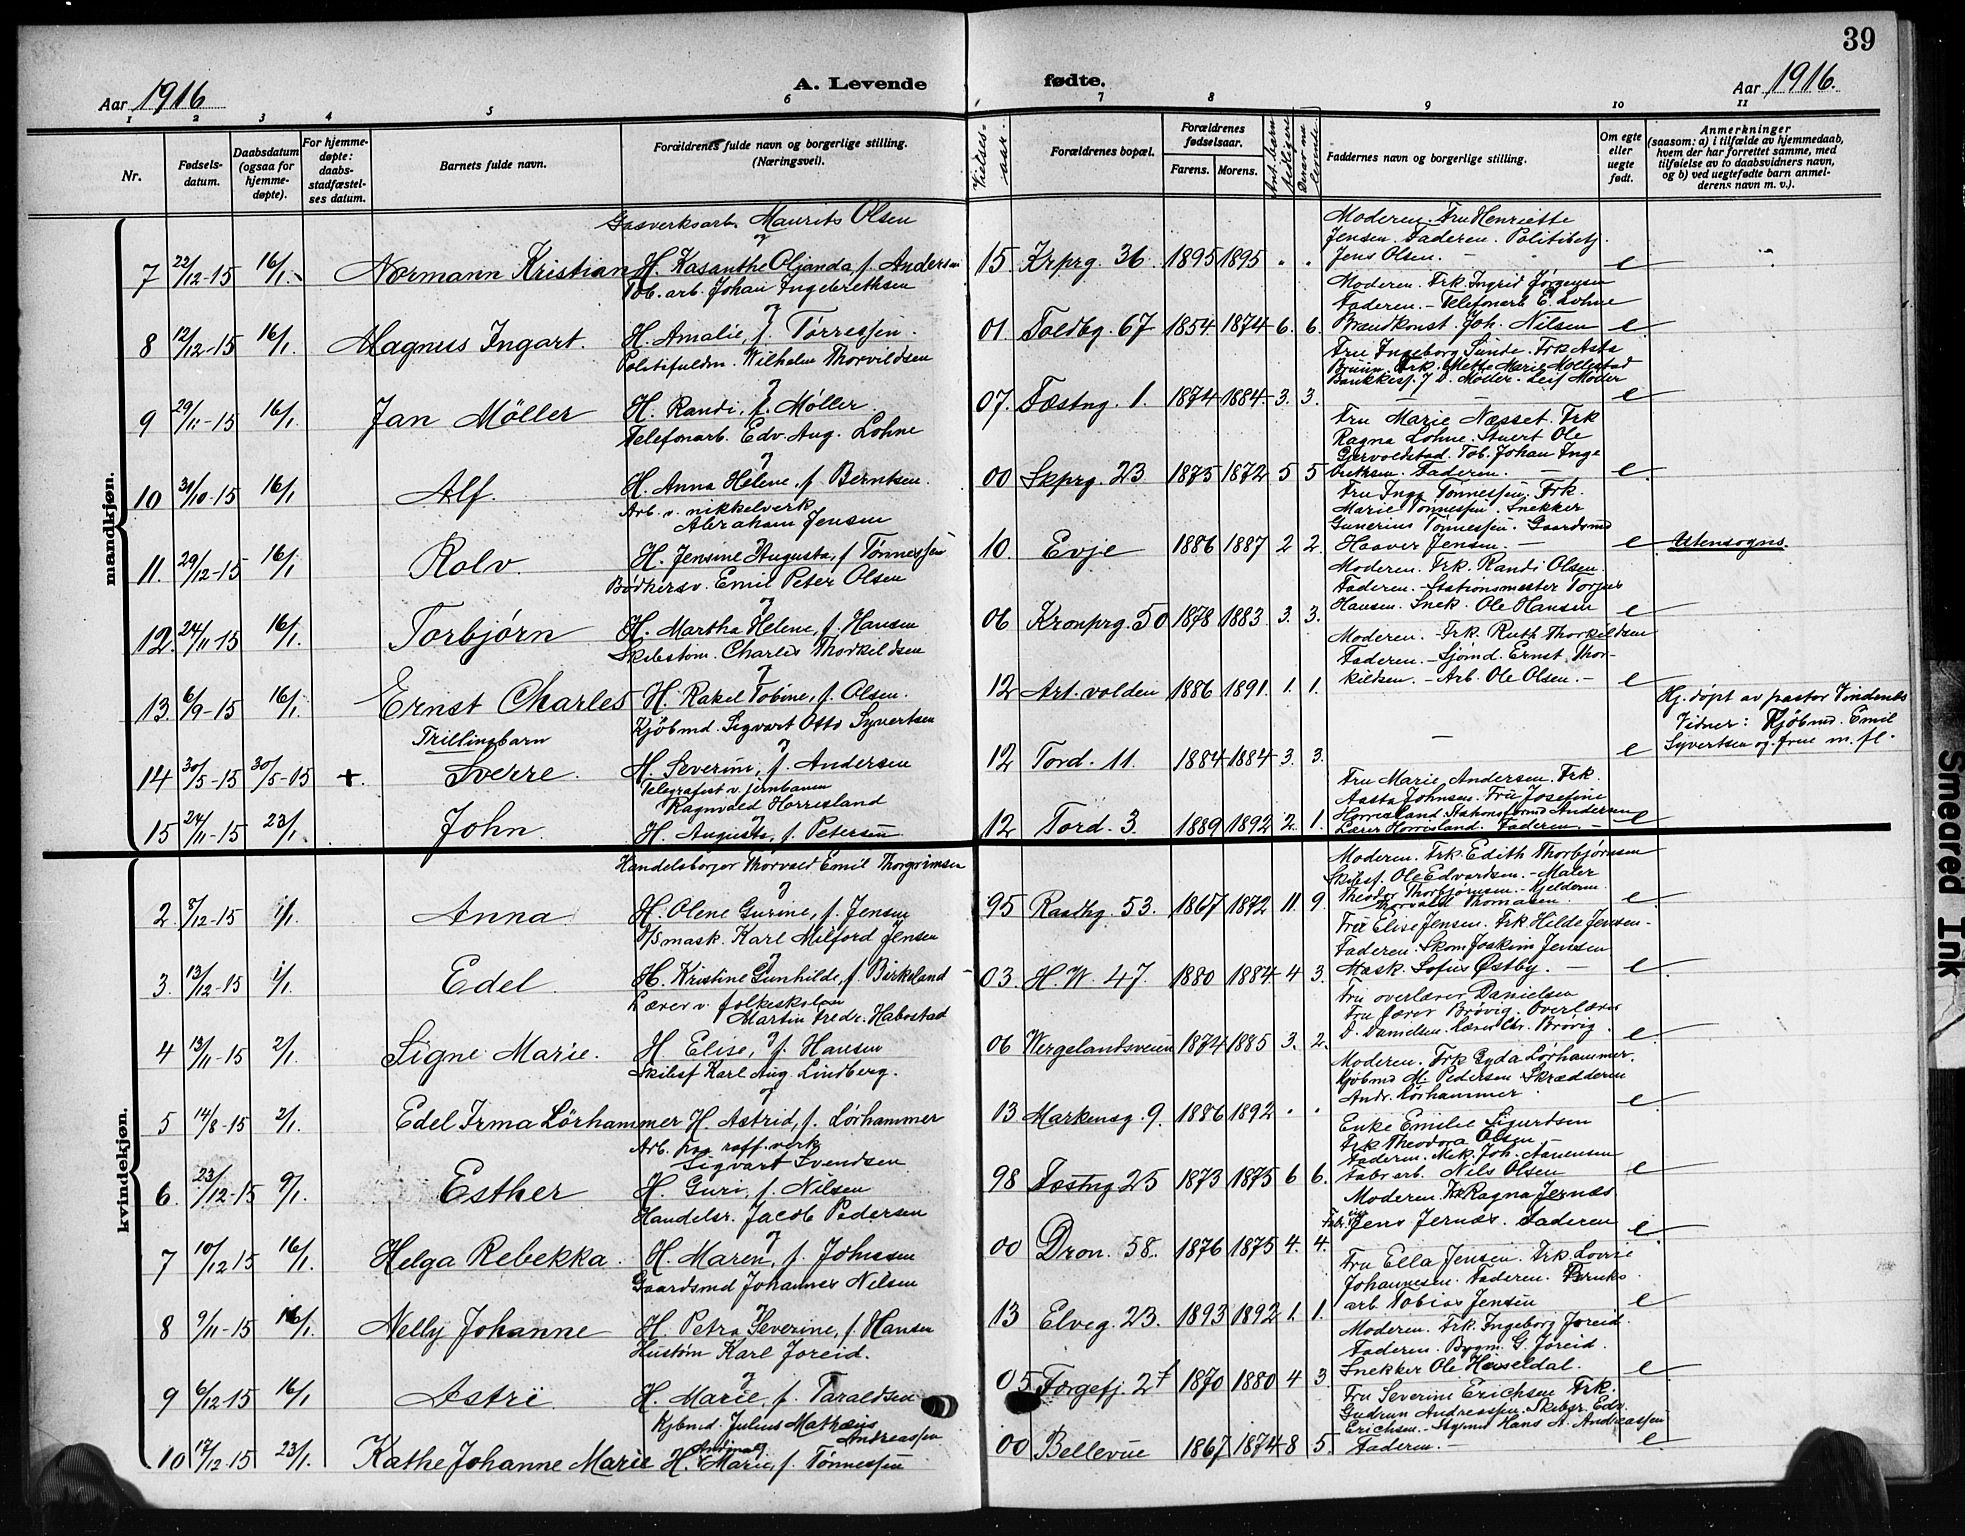 39
Aar 1916
A. Levende fødte.
Aar 1916.
1 2 3 4 5 6 7 8 9 10 11
Nr.
Fødsels-
datum.
Daabsdatum
(ogsaa for
hjemme-
døpte).
For hjemme-
døpte:
daabs-
stadfæstel-
ses datum.
Barnets fulde navn.
Forældrenes fulde navn og borgerlige stilling.
(Næringsvei).
Vielses-
aar.
Forældrenes bopæl.
Forældrenes
fødselsaar.
Farens. Morens.
Ant. barn
tidligere
Derav nu
levende
Faddernes navn og borgerlige stilling.
Om egte
eller
uegte
født.
Anmerkninger
(saasom: a) i tilfælde av hjemmedaab,
hvem der har forrettet samme, med
tilføielse av to daabsvidners navn,
og b) ved uegtefødte barn anmel-
derens navn m. v.).
mandkjøn.
Gasverksarb. Maurits Olsen
og
7 22/12-15 16/1. Normann Kristian H. Kasanthe Oljanda, f. Andersen 15 Krprg. 36. 1895 1895 " "
Moderen. Fru Henriette
Jensen. Faderen. Politibetj.
Jens Olsen. — e
Tob. arb. Johan Ingebrethsen
og
8 12/12-15 16/1. Magnus Ingart. H. Amalie, f. Tørressen. 01. Toldbg. 67 1854 1874 6. 6.
Moderen. Frk. Ingrid Jørgensen
Faderen. — Telefonarb E. Lohne
Brandkonst. Joh. Nilsen e
Politifuldm. Wilhelm Thorvildsen
og
9 29/11-15 16/1. Jan Möller H. Randi, f. Møller 07. Fæstng. 1. 1874 1884 3. 3.
Fru Ingeborg Sunde. Frk Asta
Bruun. Frk. Mette Marie Mollestad
Bankkess. J. D. Møller. Leif Møller
e
Telefonarb. Edv. Aug. Lohne
og
10 31/10-15 16/1. Alf. H. Anna Helene, f. Berntsen. 00 Skprg. 23. 1875 1872 5 5
Fru Marie Næsset. Frk
Ragna Lohne. Stuert Ole
Gervoldstad. Tob. Johan Inge
brektsen. Faderen. — e
Arb. v. nikkelverk
Abraham Jensen
11. 29/12-15 16/1 Rolv. H. Jensine Augusta, f. Tønnessen 10. Evje 1886 1887 2 2.
Fru Inga Tønnessen, Frk.
Marie Tønnessen. Snekker
Gunerius Tønnessen. Gaardsmd
Haaver Jensen. — e Utensogns.
Bødkersv. Emil Peter Olsen
og
12. 24/11-15 16/1. Torbjørn H. Martha Helene, f. Hansen 06 Kronprg. 50 1878 1883 3. 3.
Moderen. Frk. Randi Olsen.
Faderen. — Stationsmester Torjus
Hansen. Snek. Ole Hansen e
Skibstøm. Charles Thorkildsen
og
13. 6/9-15 16/1. Ernst Charles H. Rakel Tobine, f. Olsen. 12 Art. volden 1886 1891. 1. 1.
Moderen. — Frk. Ruth Thorkildsen
Faderen. — Sjømd. Ernst Thor-
kildsen. — Arb. Ole Olsen. — e
Trillingbarn
Kjøbmd. Sigvart Otto Syvertsen
og
14 30/5-15 30/5-05 +. Sverre. H. Severine, f. Andersen 12 Tord. 11. 1884 1884 3. 3. — e
Hj. døpt av pastor
Vidner: Kjøbmd. Emil
Syvertsen og frue m. fl.
Telegrafist v. jernbanen
Ragnvald Horrisland
og
15 24/11-15 23/1. John. H. Augusta, f. Petersen 12 Tord. 3. 1889 1892 2. 1.
Fru Marie Andersen. Frk.
Aasta Johnsen. Fru Josefine
Horrisland. Stationsformd Andersen
Lærer Horrisland. Faderen. — e
kvindekjøn.
Handelsborger Thorvald Emil Thorgrimsen
og
2. 8/12-15 1/1. Anna H. Olene Gurine, f. Jensen 95 Raadhg. 53. 1867 1872 11. 9.
Moderen. Frk. Edith Thorbjørnsen
Skibsf. Ole Edvardsen. — Maler
Theodor Thorbjørnsen. —
Thorvald Thomasen. e
D/S mask. Karl Milford Jensen
og
3. 13/12-15 1/1. Edel. H. Kristine Gunhilde, f. Birkeland 03. H. W. 47. 1880 1884 4 3.
Fru Elise Jensen. Frk Hilde Jensen.
Faderen. Skom. Joakim Jensen
Mask. Sofus Østby. — e
Lærer v. folkeskolen
Martin Fredr. Habostad
og
4 13/11-15 2/1. Signe Marie. H. Elise, f. Hansen 06 Wergelandsveien 1874 1885 3. 2.
Fru overlærer Danielsen
Fru lærer Brøvig. Overlærer
D. Danielsen. Lærer Chr. Brøvig. e
Skibsf Karl Aug. Lindberg.
og
5 14/8-15 2/1. Edel Irma Lörhammer H. Astrid, f. Lörhammer 13 Markensg. 9. 1886 1892 " "
Moderen. Frk Gyda Lörhammer.
Kjöbmd M. Pedersen Skrædderm
Andr. Lörhammer. e
Arb. paa raff. verk
Sigvart Svendsen
6. 23/12-15 9/1. Esther H. Guri, f. Nilsen 98 Fæstng 25 1873 1875 6 6.
Enke Emilie Sigurdsen
Frk Theodora Olsen
Faderen. Mek. Joh. Aanensen
Fabr arb. Nils Olsen e
Handelsr. Jacob Pedersen
og
7 10/12 15 16/1. Helga Rebekka. H. Maren, f. Johnsen 00 Dron. 58. 1876 1875 4. 4.
Moderen. Frk Ragna Jernæs
Jens Jernæs. Faderen e
Gaardsmd Johannes Nilsen
8 9/11-15 16/1. Nelly Johanne H. Petra Severine, f. Hansen 13 Elveg. 23. 1893 1892 1. 1.
Fru Ella Jensen. Frk Lovise
Johannesen. Faderen. Bruks.
arb Tobias Jensen e
Hustøm Karl Joreid.
og
9 6/12-15 16/1 Astri H. Marie, f. Taraldsen 05 Torgefj. 2 1870 1880 4 3.
Moderen. Frk. Ingeborg Joreid.
Faderen. Bygm. G. Joreid.
Snekker Ole Hesseldal. e
Kjbmd. Julius Mathæus
Andreassen
10 17/12-15 23/1. Kathe Johanne Marie H. Andrea Marie, f. Tønnessen 00 Bellevue 1867 1874 8 5
Fru Severine Erichsen Frk.
Gudrun Andreassen. Skibsr. Edv.
Erichsen. — Styrmd Hans A. Andreassen
Faderen. — e
Smeared Ink